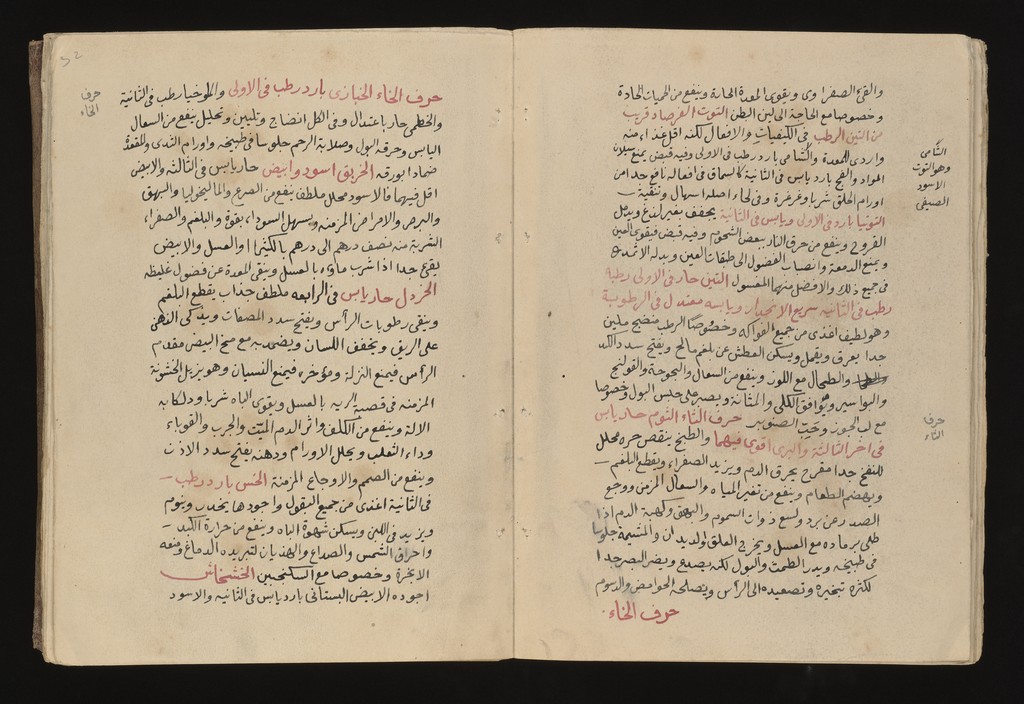 والقئ الصفراوى ويقوى المعدة الحارة وينفع من الحميات الحادة
وخصوصا مع الحاجة الى لين البطن التوت الفرصاد قريب
من التين الرطب فى الكيفيات والافعال لكنه اقل غذاء منه
واردى للمعدة والشامى بارد رطب فى الاولى وفيه قبض يمنع سيلان
المواد والفج بارد يابس فى الثانية كالسماق فى افعاله نافع جدا من
اورام الحلق شربا وغرغرة وفى لحاء اصله اسهال وتنقية
التوتيا بارد فى الاولى ويابس فى الثانية يجفف بغير لذع ويدمل
القروح وينفع من حرق النار ببعض الشحوم وفيه قبض فيقوى العين
ويمنع الدمعة وانصباب الفضول الى طبقات العين وبدله الاثمد
فى جميع ذلك والافضل منهما المغسول التين حار فى الاولى رطبه
رطب فى الثانيه سريع الانحدار ويابسه معتدل فى الرطوبة
وهو لطيف اغذى من جميع الفواكه وخصوصا الرطب منضج ملين
جدا يعرق ويقمل ويسكن العطش عن بلغم مالح ويفتح سدد الكبد
والطحال مع اللوز وينفع من السعال والبحوحة والقولنج
والبواسير ويوافق الكلى والمثانة ويصبر على حبس البول وخصوصا
مع لب الجوز وحب الصنوبر حرف الثاء الثوم حار يابس
فى اخر الثالثة والبرى اقوى فيهما والطبخ ينقص حره محلل
للنفخ جدا مقرح يحرق الدم ويزيد الصفراء ويقطع البلغم
ويهضم الطعام وينفع من تغير المياه والسعال المزمن ووجع
الصدر من برد ولسع ذوات السموم والبهق وكهبة الدم اذا
طلى برماده مع العسل ويخرج العلق والديدان والمشيمة جلوسا
فى طبيخه ويدر الطمث والبول لكنه يصدع ويضر البصر جدا
لكثرة تبخيره وتصعيده الى الرأس ويصلحه الحوامض والدسوم
حرف الخاء
الشامى
وهو التوت
الاسود
الصيفى
حرف
الثاء
حرف الخاء الخبازى بارد رطب فى الاولى والملوخيا رطب فى الثانية
والخطمى حار باعتدال وفى الكل انضاج وتليين وتحليل ينفع من السعال
اليابس وحرقة البول وصلابة الرحم جلوسا فى طبيخه واورام الثدى والمقعدة
ضمادا بورقه الخربق اسود وابيض حار يابس فى الثالثه والابيض
اقل فيهما فالاسود محلل ملطف ينفع من الصرع والماليخوليا والبهق
والبرص والامراض المزمنه ويسهل السوداء بقوة والبلغم والصفراء
الشربة منه نصف درهم الى درهم بالكثيراء والعسل والابيض
يقئ جدا اذا شرب ماؤه بالعسل وينقى المعدة عن فضول غليظه
الخردل حار يابس فى الرابعه ملطف جذاب يقطع البلغم
وينقى رطوبات الرأس ويفتح سدد المصفات ويذكى الذهن
على الريق ويجفف اللسان ويضمد به مع مخ البيض مقدم
الرأس فيمنع النزلة ومؤخره فيمنع النسيان وهو يزيل الخشونة
المزمنه فى قصبة الريه بالعسل ويقوى الباه شربا ودلكا به
الالة وينفع من الكلف واثر الدم الميت والجرب والقوباء
وداء الثعلب ويحلل الاورام ودهنه يفتح سدد الاذن
وينفع من الصمم والاوجاع المزمنة الخس بارد رطب
فى الثانية اغذى من جميع البقول واجودها يخدر وينوم
ويزيد فى اللبن ويسكن شهوة الباه وينفع من حرارة الكبد
واحراق الشمس والصداع والهذيان لتبريده الدماغ ومنعه
الابخرة وخصوصا مع السكنجبين الخشخاش
اجوده الابيض البستانى بارد يابس فى الثانيه والاسود
حرف
الخاء